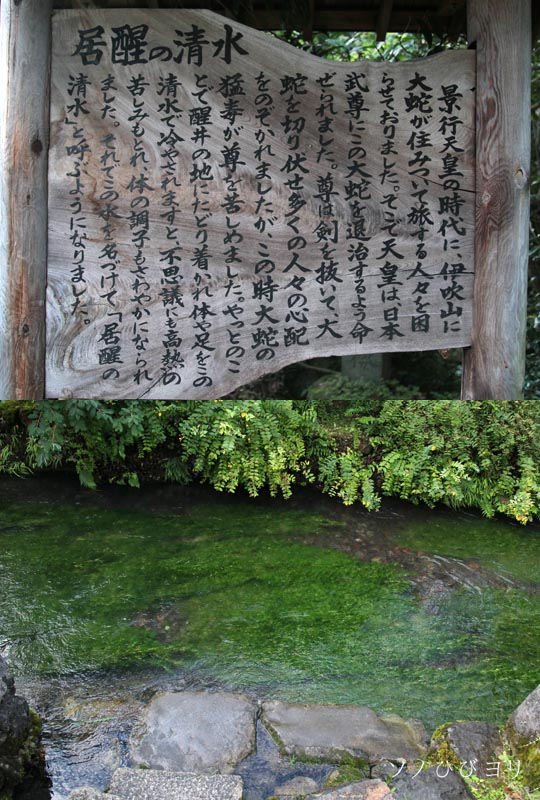 居醒の清水
景行天皇の時代に、伊吹山に
大蛇が住みついて旅する人々を困
らせておりました。そこで天皇は、日本
武尊にこの大蛇を退治するよう命
ぜられました。尊は剣を抜いて、大
蛇を切り伏せ多くの人々の心配
をのぞかれましたが、この時大蛇の
猛毒が尊を苦しめました。やっとのこ
とで醒井の地にたどり着かれ体や足をこの
清水で冷やされますと、不思議にも高熱の
苦しみもとれ、体の調子もさわやかになられ
ました。それでこの水を名づけて「居醒の
清水」と呼ぶようになりました。
ソノひびヨリ